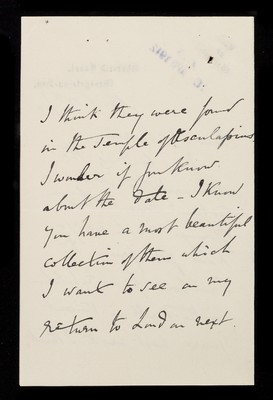 I think they were found
in the Temple of Æsculapius,
I wonder if you know
about the date – I know
you have a most beautiful
collection of them which
I want to see on my
return to London next.